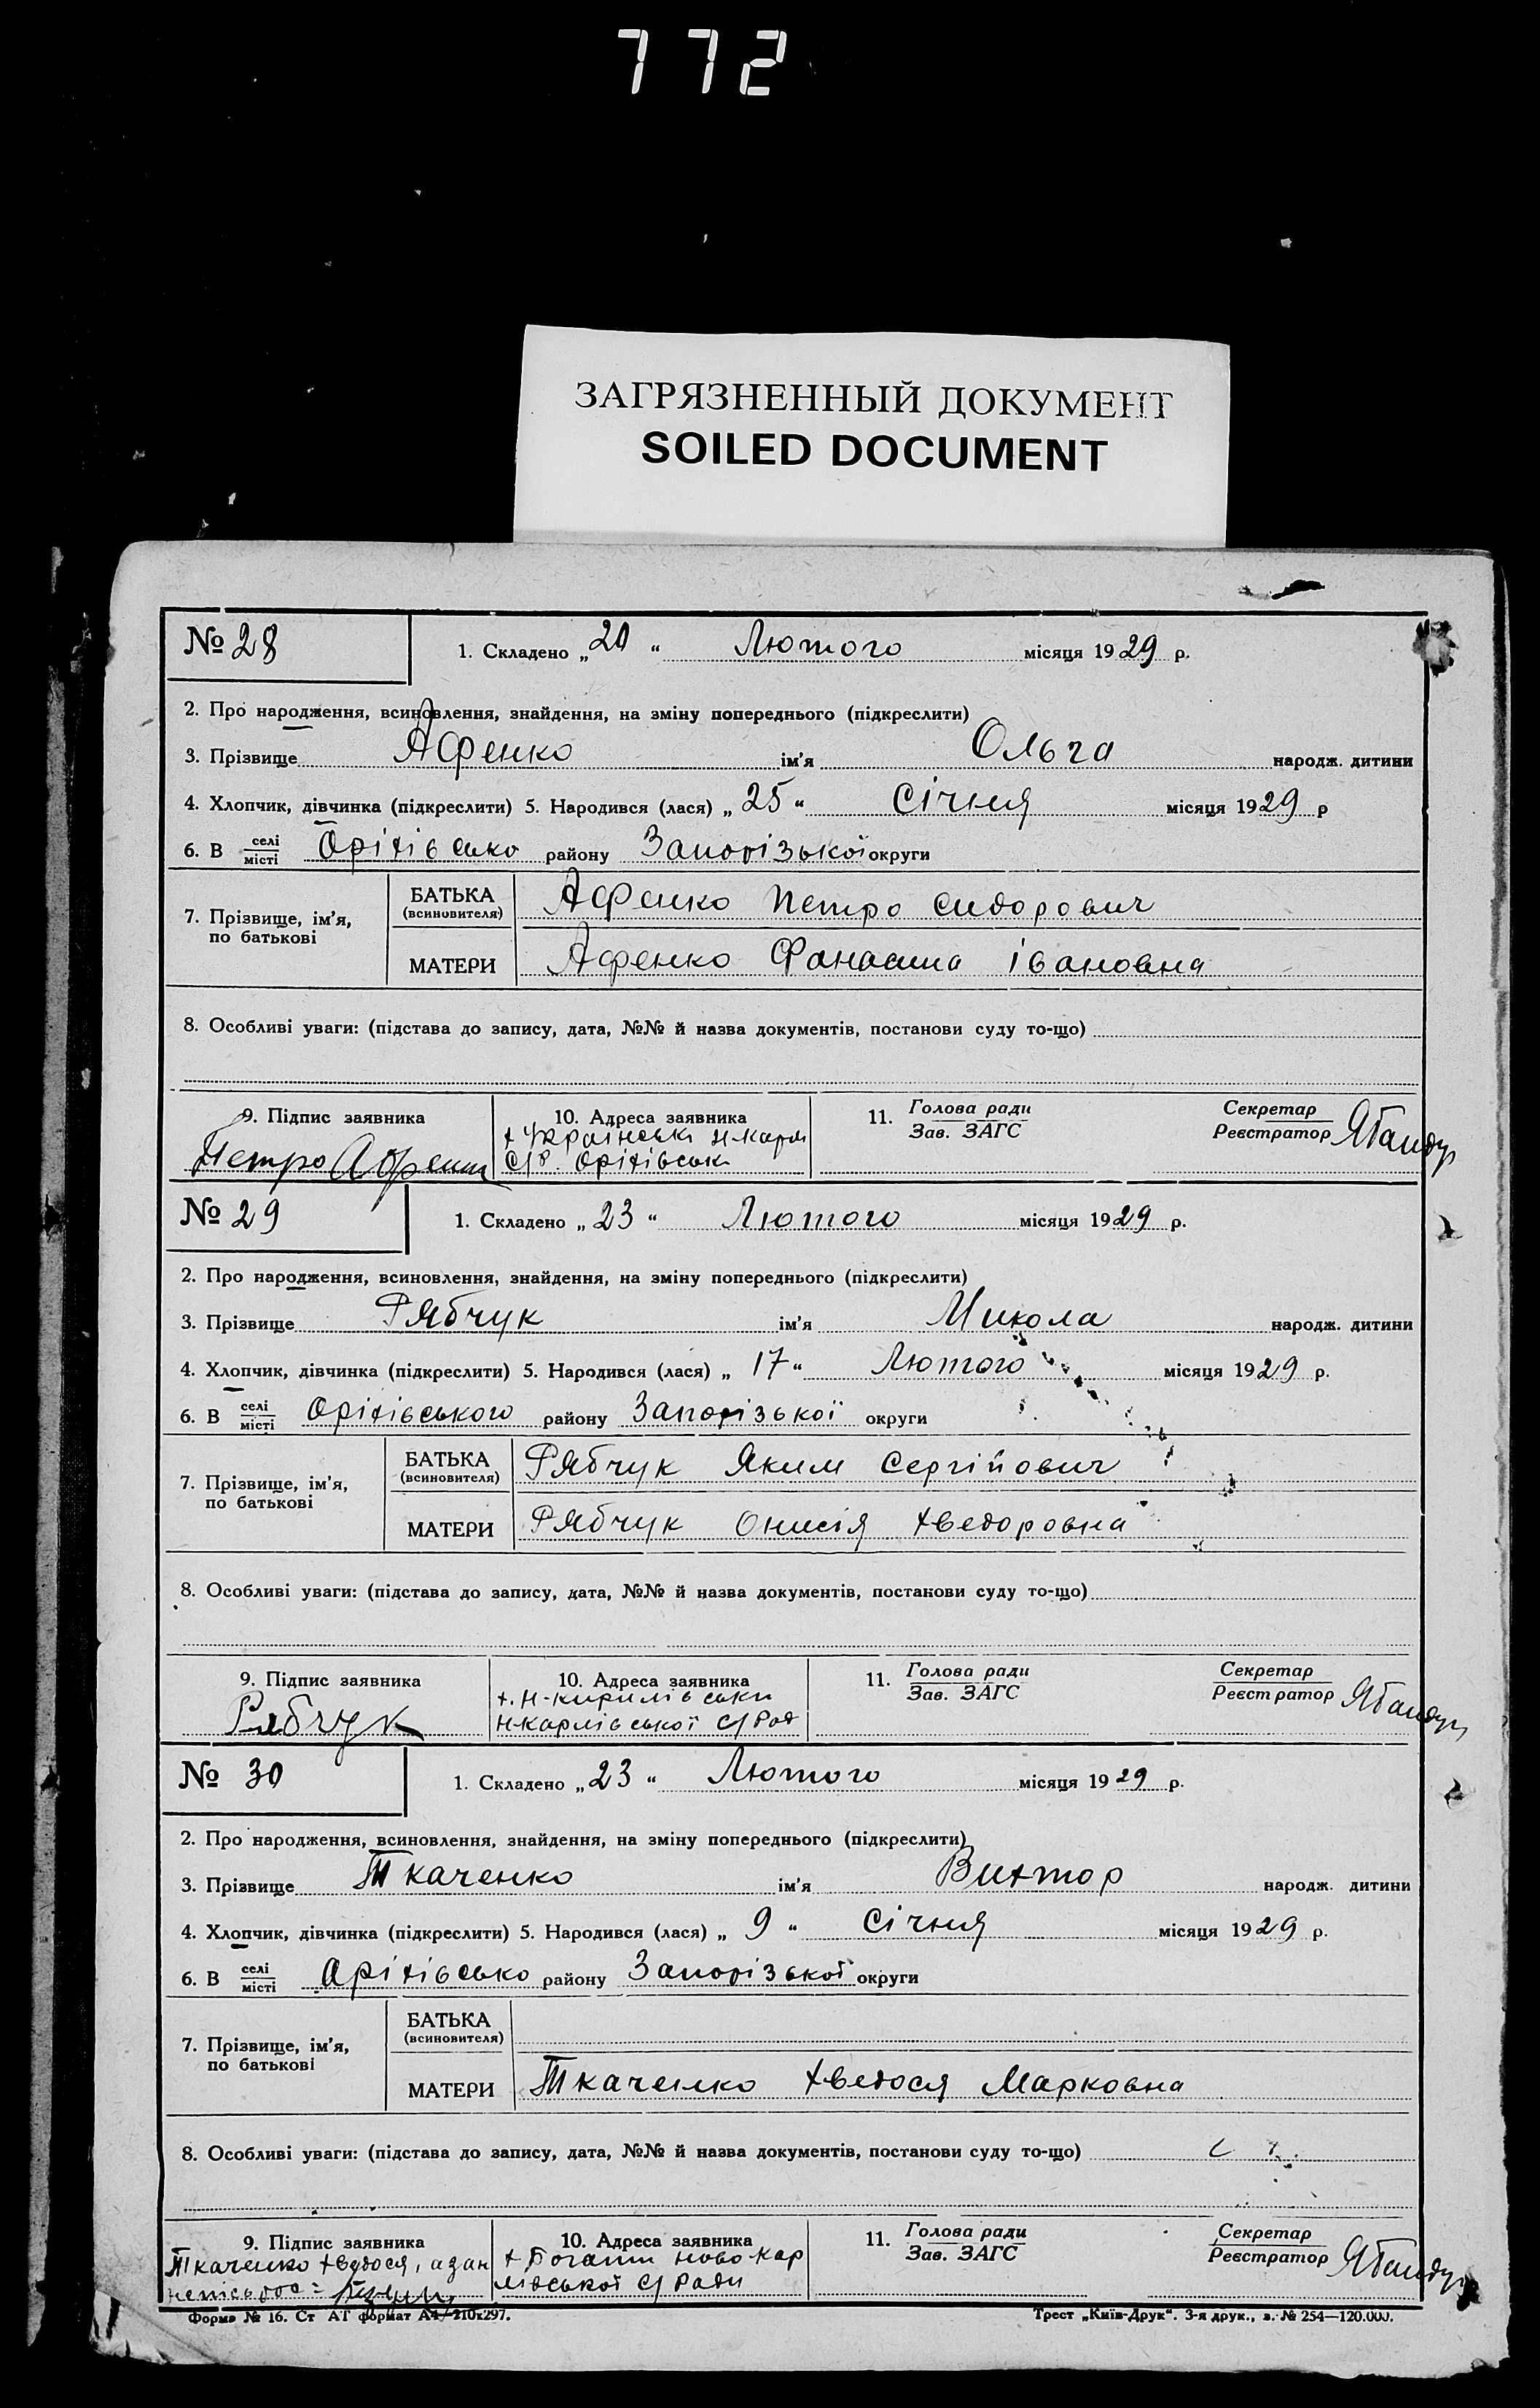 772
ЗАГРЯЗНЕННЫЙ ДОКУМЕНТ
SOILED DOCUMENT
№ 28 1. Складено „20“ Лютого місяця 1929 р.
2. Про народження, всиновлення, знайдення, на зміну попереднього (підкреслити)
3. Прізвище Афенко ім'я Ольга народж. дитини
4. Хлопчик, дівчинка (підкреслити) 5. Народився (лася) „25“ Січня місяця 1929 р
6. В селі/місті Оріхівсько району Запорізької округи
7. Прізвище, ім'я, по батькові
БАТЬКА (всиновителя) Афенко Петро Сидорович
МАТЕРИ Афенко Івановна
8. Особливі уваги: (підстава до запису, дата, №№ й назва документів, постанови суду то-що)
9. Підпис заявника 10. Адреса заявника 11. Голова ради/Зав. ЗАГС Секретар/Реєстратор
х Українські Н-Карл
Петро Афенко С/р. Оріхівськ
№ 29 1. Складено „23“ Лютого місяця 1929 р.
2. Про народження, всиновлення, знайдення, на зміну попереднього (підкреслити)
3. Прізвище Рябчук ім'я Микола народж. дитини
4. Хлопчик, дівчинка (підкреслити) 5. Народився (лася) „17“ Лютого місяця 1929 р.
6. В селі/місті Оріхівського району Запорізької округи
7. Прізвище, ім'я, по батькові
БАТЬКА (всиновителя) Рябчук Яким Сергійович
МАТЕРИ Рябчук Онисія Хведоровна
8. Особливі уваги: (підстава до запису, дата, №№ й назва документів, постанови суду то-що)
9. Підпис заявника 10. Адреса заявника 11. Голова ради/Зав. ЗАГС Секретар/Реєстратор
х. Н-Кирилівськи
Рябчук Н-Карлівської С/Рад
№ 30 1. Складено „23“ Лютого місяця 1929 р.
2. Про народження, всиновлення, знайдення, на зміну попереднього (підкреслити)
3. Прізвище Ткаченко ім'я Вихтор народж. дитини
4. Хлопчик, дівчинка (підкреслити) 5. Народився (лася) „9“ Січня місяця 1929 р.
6. В селі/місті Оріхівсько району Запорізької округи
7. Прізвище, ім'я, по батькові
БАТЬКА (всиновителя)
МАТЕРИ Ткаченко Хведося Марковна
8. Особливі уваги: (підстава до запису, дата, №№ й назва документів, постанови суду то-що)
9. Підпис заявника 10. Адреса заявника 11. Голова ради/Зав. ЗАГС Секретар/Реєстратор
Ткаченко Хведося, а за х Богати Ново Кар
лівської С/Ради
Форма № 16. Ст АГ формат А4—210х297. Трест „Київ-Друк“. 3-я друк., з. № 254—120.000.